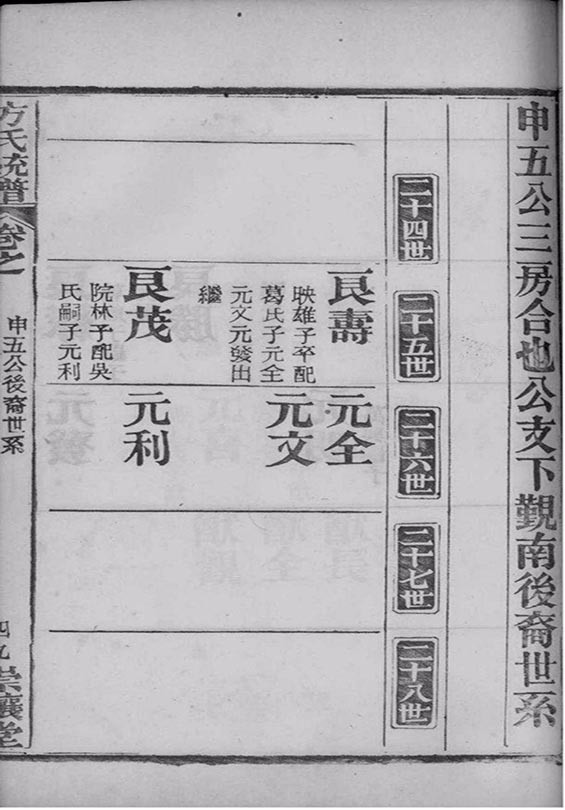 申五公三房合也公支下觐南後裔世系
二十四世
二十五世
二十六世
二十七世
二十八世
良壽
映雄子卒配
葛氏子元全
元文元發出
繼
良茂
院林子配吳
氏嗣子元利
元全
元文
元利
方氏統譜
卷之
申五公後裔世系
四九
崇讓堂